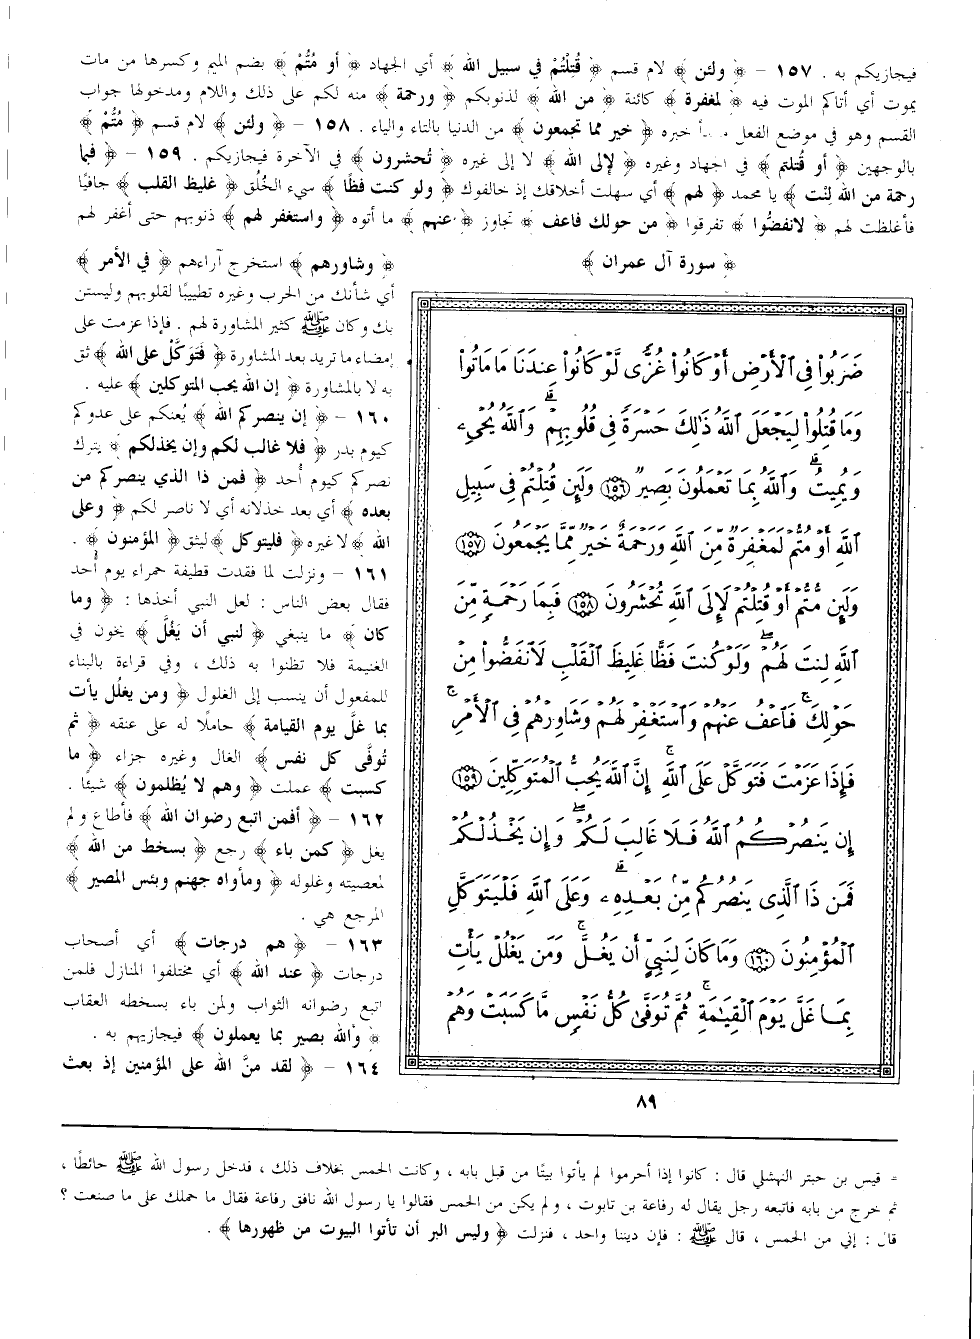 فيجازيكم به . ١٥٧ - ﴿ ولئن ﴾ لام قسم ﴿ قُتلْتُمْ في سبيل الله ﴾ أي الجهاد ﴿ أو مُتُّمْ ﴾ بضم الميم وكسرها من مات
يموت أي أتاكم الموت فيه ﴿ لمغفرة ﴾ كائنة ﴿ من الله ﴾ لذنوبكم ﴿ ورحمة ﴾ منه لكم على ذلك واللام ومدخولها جواب
القسم وهو في موضع الفعل خبره ﴿ خير مما تجمعون ﴾ من الدنيا بالتاء والياء . ١٥٨ - ﴿ ولئن ﴾ لام قسم ﴿ مُتُّمْ ﴾
بالوجهين ﴿ أو قُتلتم ﴾ في الجهاد وغيره ﴿ لإلى الله ﴾ لا إلى غيره ﴿ تُحشرون ﴾ في الآخرة فيجازيكم . ١٥٩ - ﴿ فبما
رحمة من الله لِنْت ﴾ يا محمد ﴿ لهم ﴾ أي سهلت أخلاقك إذ خالفوك ﴿ ولو كنت فظًا ﴾ سيء الخُلُق ﴿ غليظ القلب ﴾ جافيًا
فأغلظت لهم ﴿ لانفضُّوا ﴾ تفرقوا ﴿ من حولك فاعف ﴾ تجاوز ﴿ عنهم ﴾ ما أتوه ﴿ واستغفر لهم ﴾ ذنوبهم حتى أغفر لهم
﴿ سورة آل عمران ﴾
﴿ وشاورهم ﴾ استخرج آراءهم ﴿ في الأمر ﴾
أي شأنك من الحرب وغيره تطييبًا لقلوبهم وليستن
بك وكان ﷺ كثير المشاورة لهم . فإذا عزمت على
إمضاء ما تريد بعد المشاورة ﴿ فَتَوكَّلْ على الله ﴾ ثق
به لا بالمشاورة ﴿ إن الله يحب المتوكلين ﴾ عليه .
١٦٠ - ﴿ إن ينصركم الله ﴾ يُعنكم على عدوكم
كيوم بدر ﴿ فلا غالب لكم وإن يخذلكم ﴾ يترك
نصركم كيوم أُحد ﴿ فمن ذا الذي ينصركم من
بعده ﴾ أي بعد خذلانه أي لا ناصر لكم ﴿ وعلى
الله ﴾ لا غيره ﴿ فليتوكل ﴾ ليثق ﴿ المؤمنون ﴾ .
١٦١ - ونزلت لما فقدت قطيفة حمراء يوم أحد
فقال بعض الناس : لعل النبي أخذها : ﴿ وما
كان ﴾ ما ينبغي ﴿ لنبي أن يَغُلَّ ﴾ يخون في
الغنيمة فلا تظنوا به ذلك ، وفي قراءة بالبناء
للمفعول أن ينسب إلى الغلول ﴿ ومن يغلُل يأت
بما غلَّ يوم القيامة ﴾ حاملًا له على عنقه ﴿ ثم
تُوفَّى كل نفس ﴾ الغال وغيره جزاء ﴿ ما
كسبت ﴾ عملت ﴿ وهم لا يُظلمون ﴾ شيئًا .
١٦٢ - ﴿ أفمن اتبع رضوان الله ﴾ فأطاع ولم
يغل ﴿ كمن باء ﴾ رجع ﴿ بسخط من الله ﴾
لمعصيته وغلوله ﴿ ومأواه جهنم وبئس المصير ﴾
المرجع هي .
١٦٣ - ﴿ هم درجات ﴾ أي أصحاب
درجات ﴿ عند الله ﴾ أي مختلفوا المنازل فلمن
اتبع رضوانه الثواب ولمن باء بسخطه العقاب
﴿ والله بصير بما يعملون ﴾ فيجازيهم به .
١٦٤ - ﴿ لقد منَّ الله على المؤمنين إذ بعث
ضَرَبُوا۟ فِى ٱلْأَرْضِ أَوْ كَانُوا۟ غُزًّى لَّوْ كَانُوا۟ عِندَنَا مَا مَاتُوا۟
وَمَا قُتِلُوا۟ لِيَجْعَلَ ٱللَّهُ ذَٰلِكَ حَسْرَةً فِى قُلُوبِهِمْ ۗ وَٱللَّهُ يُحْىِۦ
وَيُمِيتُ ۗ وَٱللَّهُ بِمَا تَعْمَلُونَ بَصِيرٌ ١٥٦ وَلَئِن قُتِلْتُمْ فِى سَبِيلِ
ٱللَّهِ أَوْ مُتُّمْ لَمَغْفِرَةٌ مِّنَ ٱللَّهِ وَرَحْمَةٌ خَيْرٌ مِّمَّا يَجْمَعُونَ ١٥٧
وَلَئِن مُّتُّمْ أَوْ قُتِلْتُمْ لَإِلَى ٱللَّهِ تُحْشَرُونَ ١٥٨ فَبِمَا رَحْمَةٍ مِّنَ
ٱللَّهِ لِنتَ لَهُمْ ۖ وَلَوْ كُنتَ فَظًّا غَلِيظَ ٱلْقَلْبِ لَٱنفَضُّوا۟ مِنْ
حَوْلِكَ ۖ فَٱعْفُ عَنْهُمْ وَٱسْتَغْفِرْ لَهُمْ وَشَاوِرْهُمْ فِى ٱلْأَمْرِ ۖ
فَإِذَا عَزَمْتَ فَتَوَكَّلْ عَلَى ٱللَّهِ ۚ إِنَّ ٱللَّهَ يُحِبُّ ٱلْمُتَوَكِّلِينَ ١٥٩
إِن يَنصُرْكُمُ ٱللَّهُ فَلَا غَالِبَ لَكُمْ ۖ وَإِن يَخْذُلْكُمْ
فَمَن ذَا ٱلَّذِى يَنصُرُكُم مِّنۢ بَعْدِهِۦ ۗ وَعَلَى ٱللَّهِ فَلْيَتَوَكَّلِ
ٱلْمُؤْمِنُونَ ١٦٠ وَمَا كَانَ لِنَبِىٍّ أَن يَغُلَّ ۚ وَمَن يَغْلُلْ يَأْتِ
بِمَا غَلَّ يَوْمَ ٱلْقِيَٰمَةِ ۚ ثُمَّ تُوَفَّىٰ كُلُّ نَفْسٍ مَّا كَسَبَتْ وَهُمْ
٨٩
= قيس بن حبتر النهشلي قال : كانوا إذا أحرموا لم يأتوا بيتًا من قبل بابه ، وكانت الحمس بخلاف ذلك ، فدخل رسول الله ﷺ حائطًا ،
ثم خرج من بابه فاتبعه رجل يقال له رفاعة بن تابوت ، ولم يكن من الحمس فقالوا يا رسول الله نافق رفاعة فقال ما حملك على ما صنعت ؟
قال : إني من الحمس ، قال ﷺ : فإن ديننا واحد ، فنزلت ﴿ وليس البر أن تأتوا البيوت من ظهورها ﴾ .